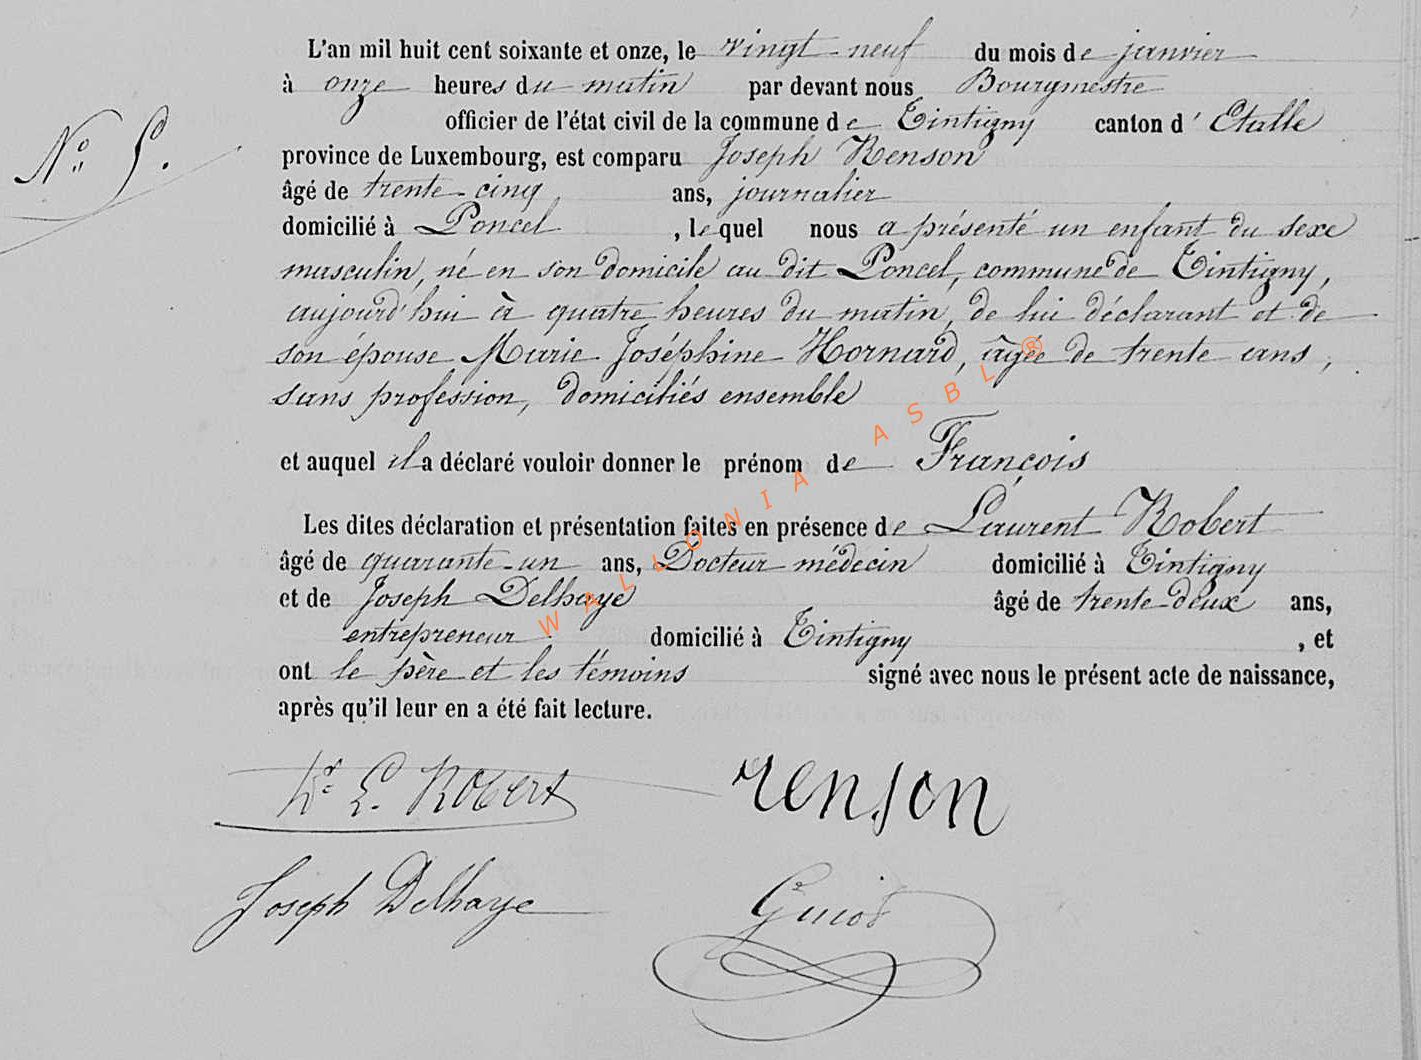 L'an mil huit cent soixante et onze, le vingt-neuf du mois de janvier
à onze heures du matin par devant nous Bourgmestre
officier de l'état civil de la commune de Tintigny canton d' Etalle
N° 5.
province de Luxembourg, est comparu Joseph Renson
âgé de trente-cinq ans, journalier
domicilié à Poncel , lequel nous a présenté un enfant du sexe
masculin, né en son domicile au dit Poncel, commune de Tintigny,
aujourd'hui à quatre heures du matin, de lui déclarant et de
son épouse Marie Joséphine Hornard, âgée de trente ans,
sans profession, domiciliés ensemble
et auquel il a déclaré vouloir donner le prénom de François
Les dites déclaration et présentation faites en présence de Laurent Robert
âgé de quarante-un ans, Docteur médecin domicilié à Tintigny
et de Joseph Delhaye âgé de trente-deux ans,
entrepreneur domicilié à Tintigny , et
ont le père et les témoins signé avec nous le présent acte de naissance,
après qu'il leur en a été fait lecture.
Dr L. Robert renson
Joseph Delhaye Guiot
WALLONIA ASBL ®